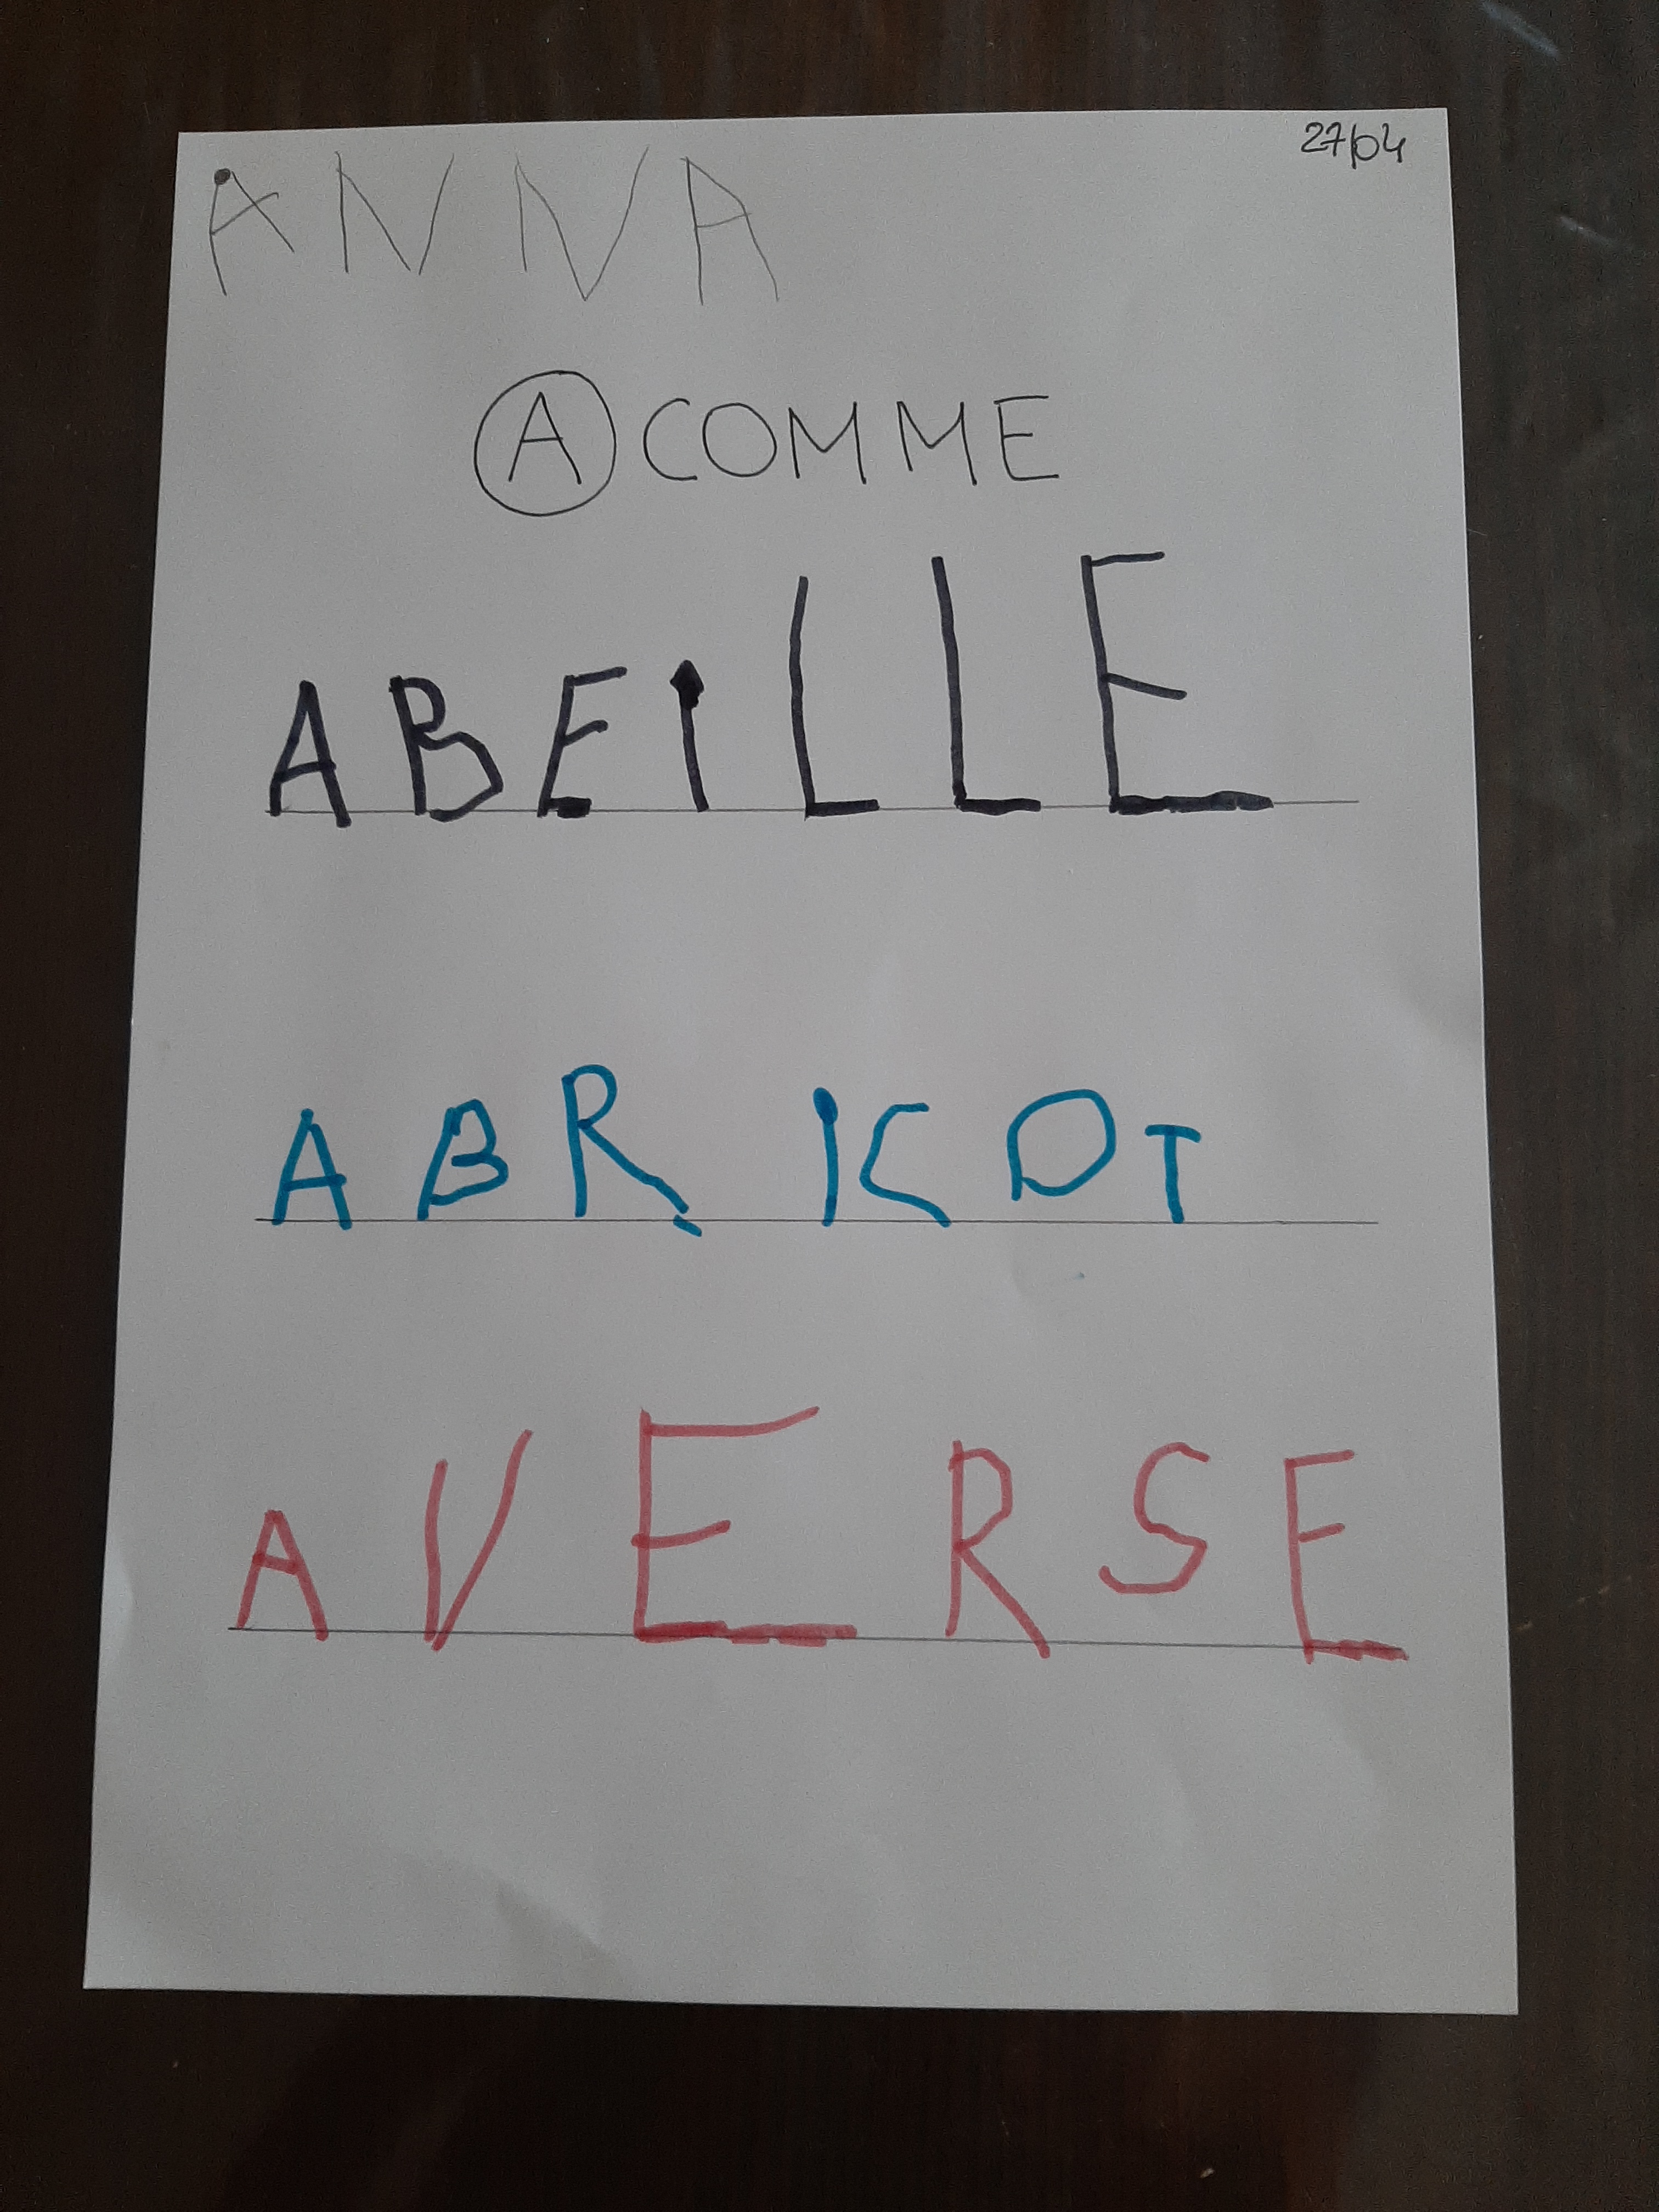 27/04
ANNA
A COMME
ABEILLE
ABRICOT
AVERSE